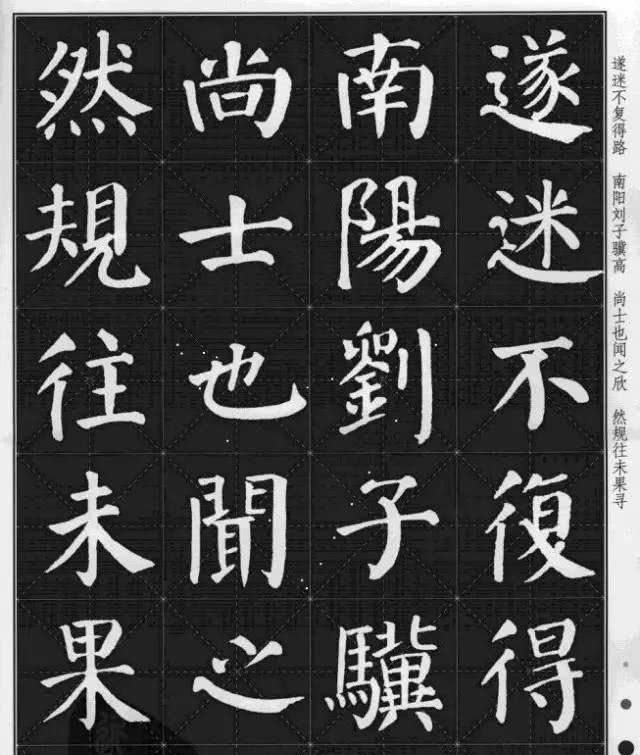 遂迷不復得
南陽劉子驥
尚士也聞之
然規往未果
遂迷不复得路 南阳刘子骥高 尚士也闻之欣 然规往未果寻